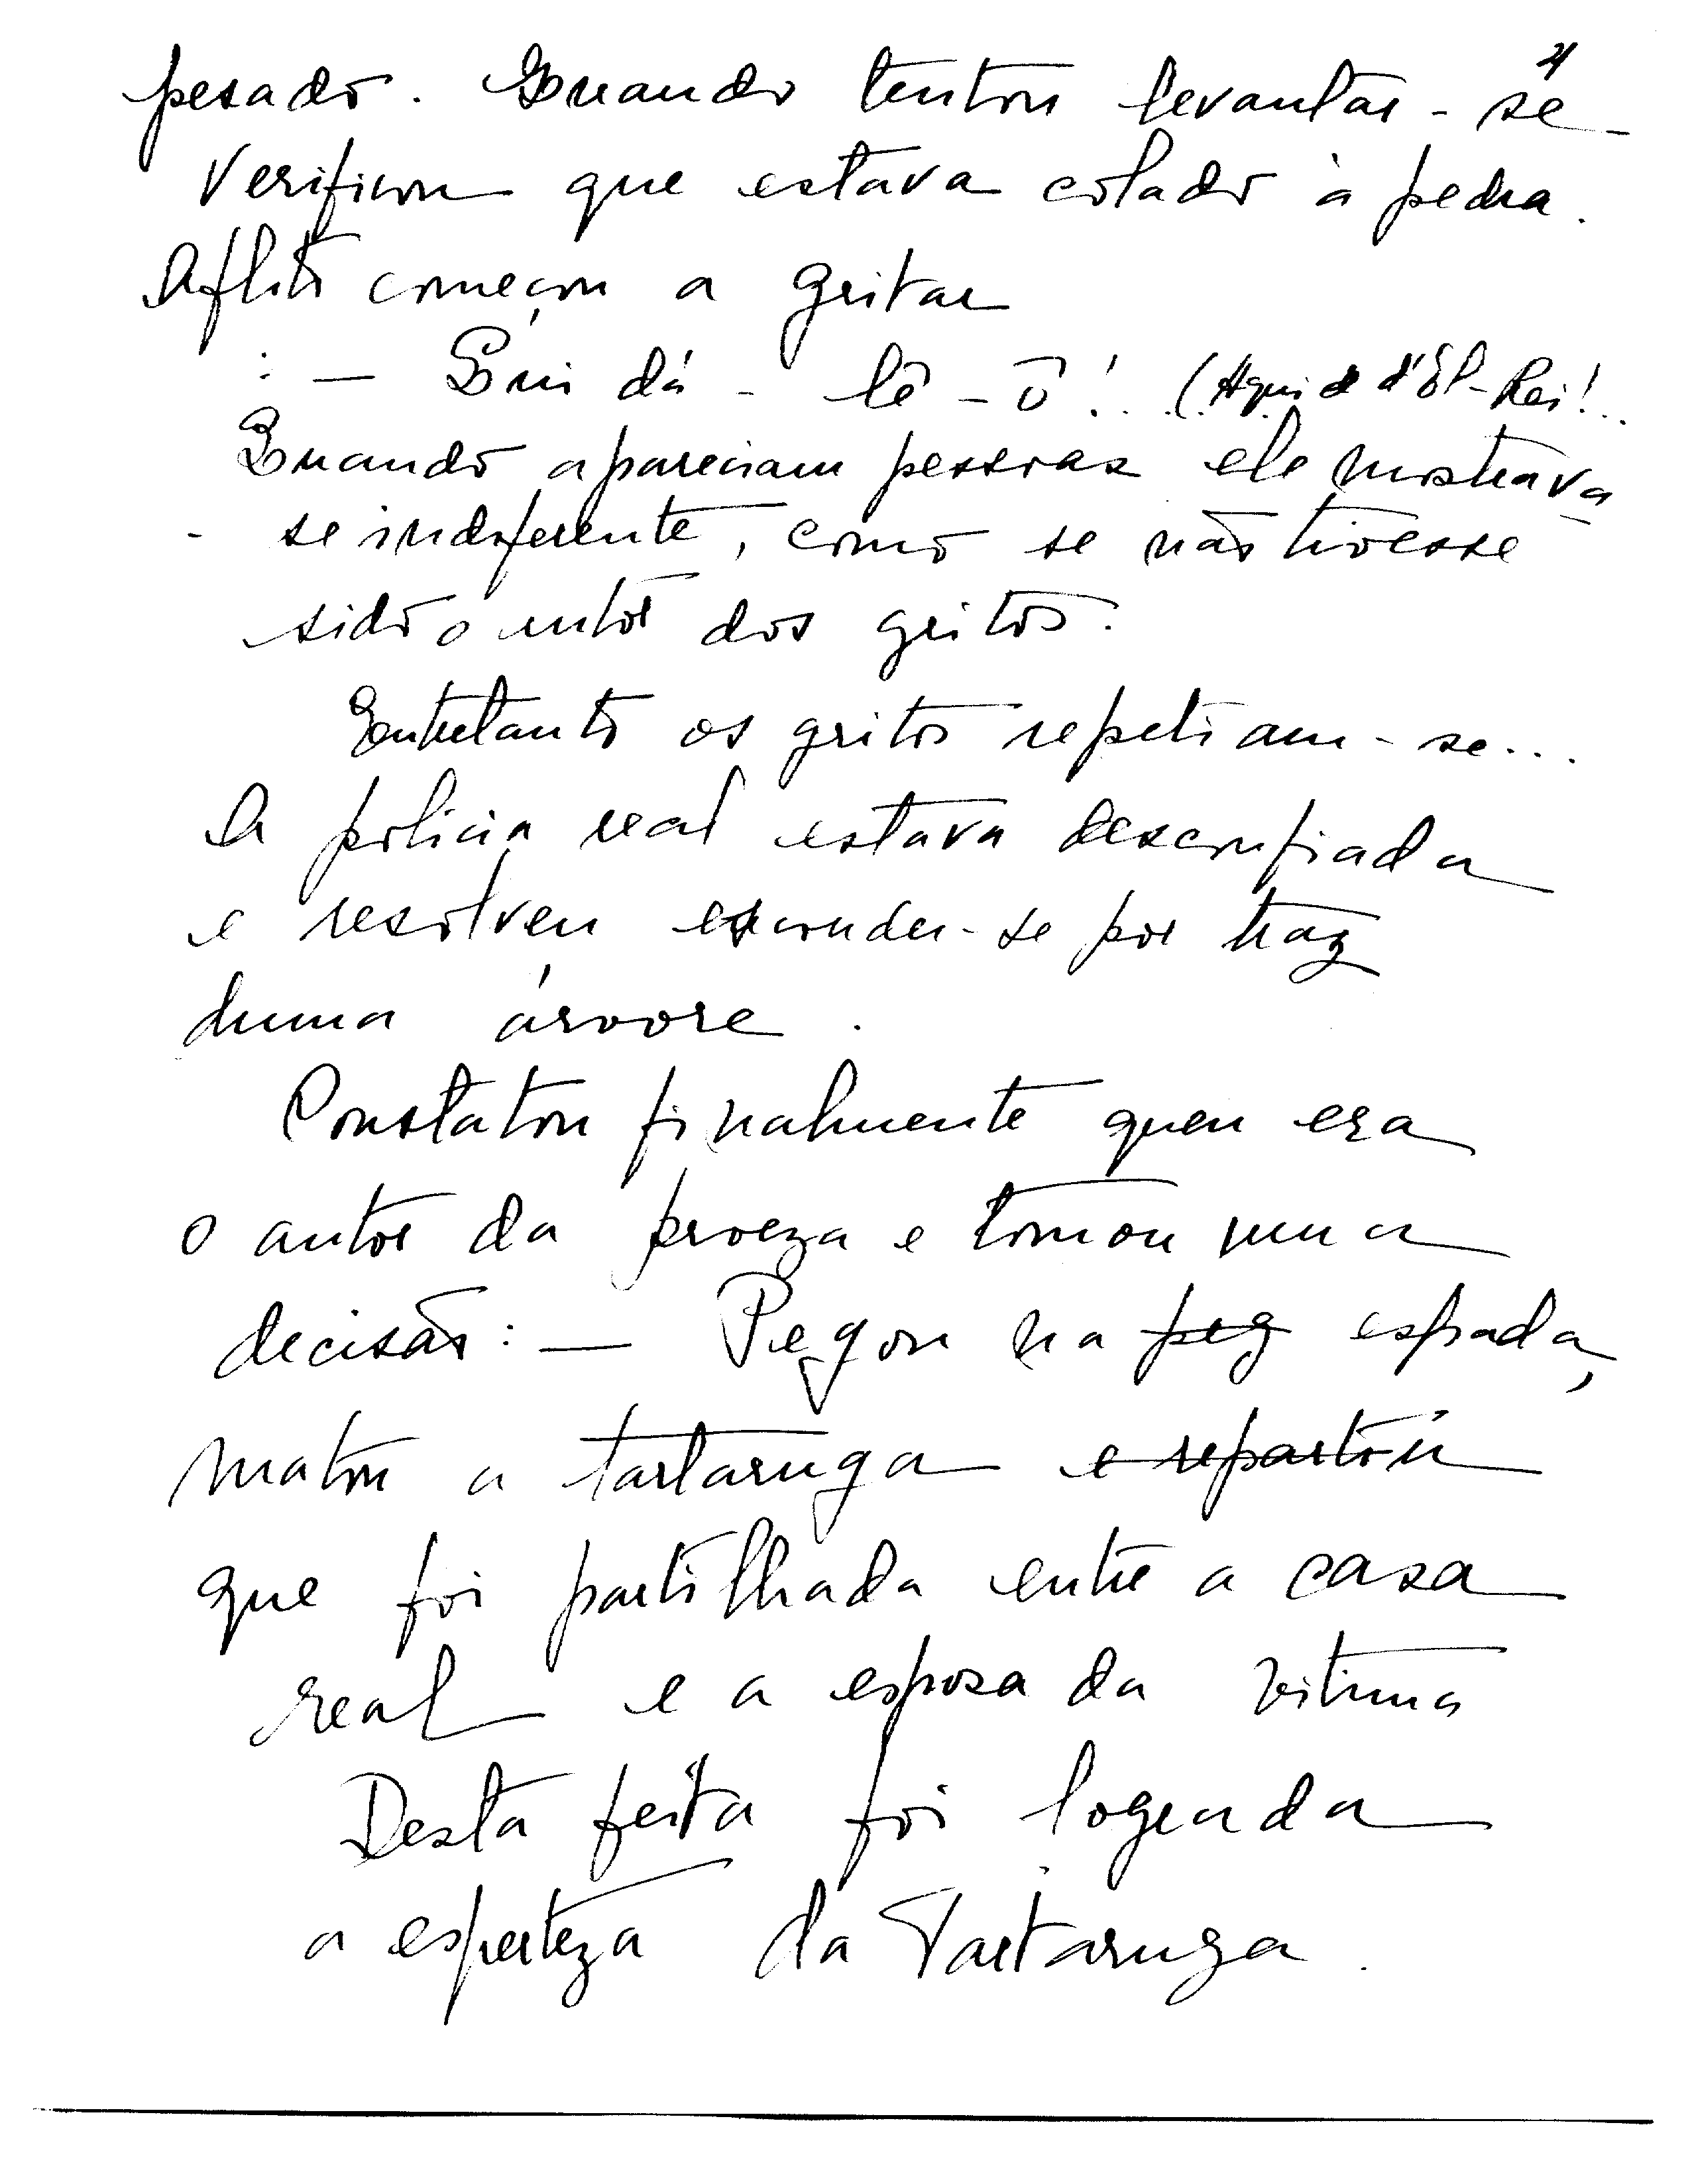 4
pesado. Quando tentou levantar-se-
verificou que estava colado à pedra.
Aflito começou a gritar
: — Gui dá - lê - ô!.. (Aqui d'El-Rei!..
Quando apareciam pessoas ele mostrava
- se indiferente, como se não tivesse
sido o autor dos gritos.
Entretanto os gritos repetiam-se...
A policia real estava desconfiada
e resolveu esconder-se por traz
duma árvore.
Constatou finalmente quem era
o autor da proeza e tomou uma
decisão: — Pegou na peg espada,
matou a tartaruga e repartiu
que foi partilhada entre a casa
real e a esposa da vitima
Desta feita foi lograda
a esperteza da Tartaruga.